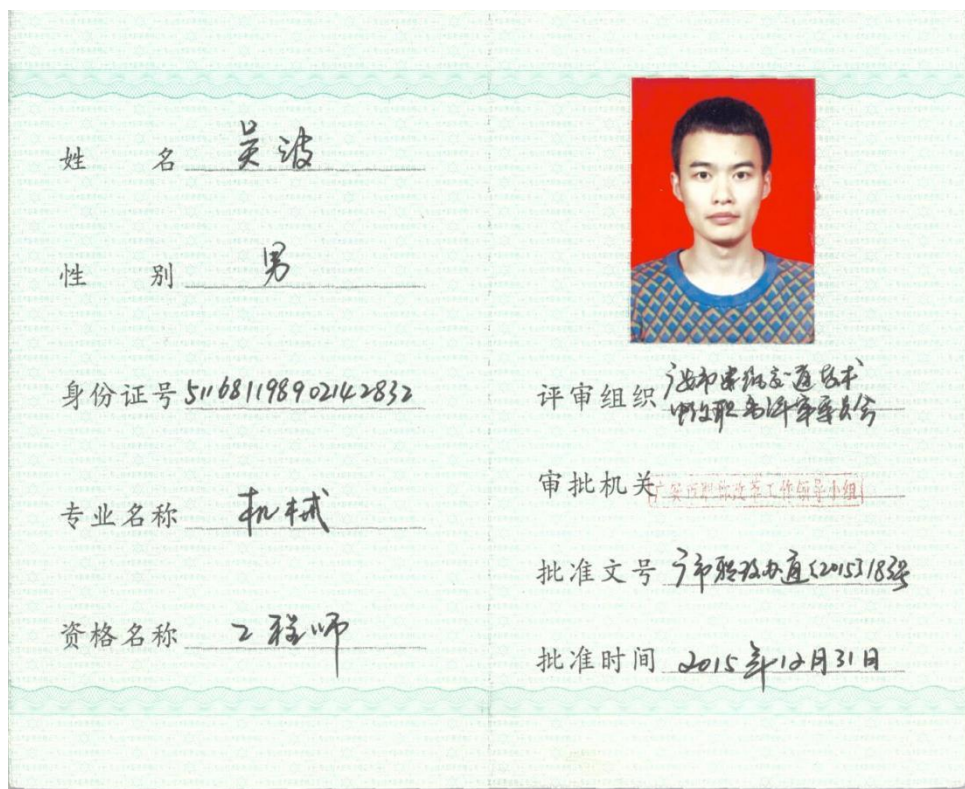 姓 名 吴波
性 别 男
身份证号 511681198902142832
专业名称 机械
资格名称 工程师
评审组织 广安市建筑交通技术
中级职务评审委员会
审批机关 广安市职称改革工作领导小组
批准文号 广市职改办通[2015]183号
批准时间 2015年12月31日